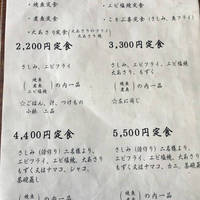 ・焼魚定食
・煮魚定食
・大あさり定食(大あさりのフライ 大あさり焼)
・エビ塩焼定食
・ことぶき定食(さしみ、魚フライ)
2,200円定食
さしみ、エビフライ
(焼魚 煮魚)の内一品
☆ごはん、汁、つけもの
小鉢 二品
3,300円定食
さしみ、エビフライ、エビ塩焼
大あさり
(焼魚 煮魚)の内一品
☆左に同じ
4,400円定食
さしみ(活作り)二名様より、
エビフライ、エビ塩焼、大あさり
もずく又はナマコ、シャコ、
茶碗蒸し
(焼魚 煮魚)の内一品
5,500円定食
さしみ(活作り)二名様より、
エビフライ、エビ塩焼、大あさり
もずく又はナマコ、カニ、茶碗蒸
(焼魚 煮魚)の内一品